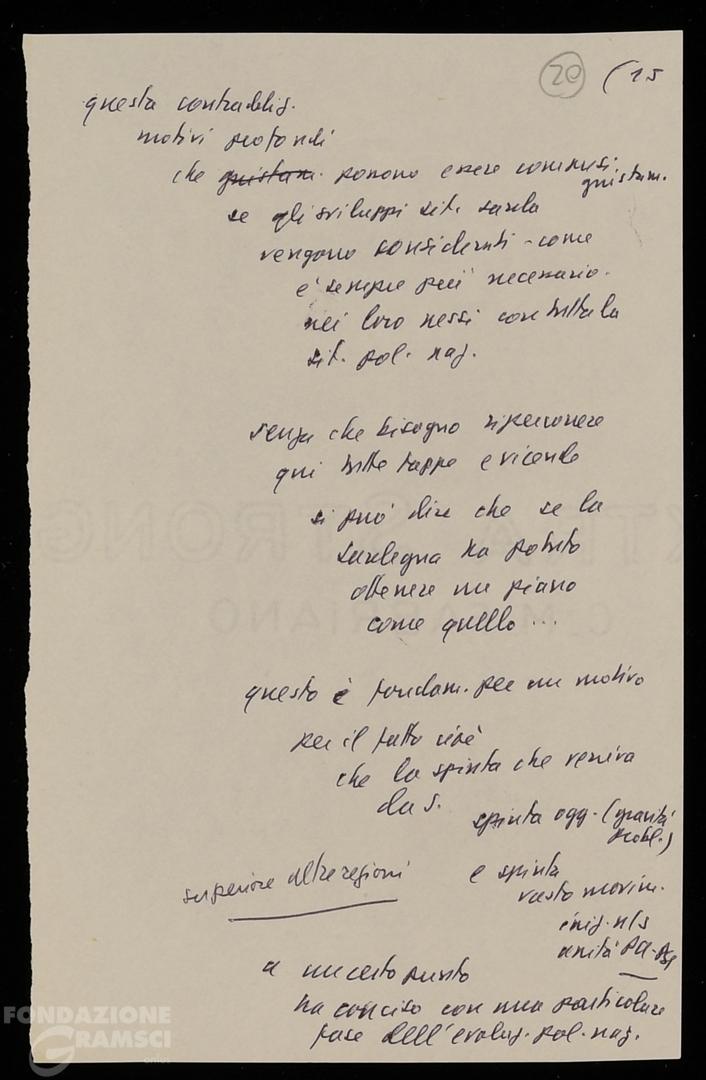 20 (15
questa contraddiz.
motivi profondi
che giustam. possono essere compresi
giustam.
se gli sviluppi sit. sarda
vengono considerati - come
è sempre più necessario -
nei loro nessi con tutta la
sit. pol. naz.
senza che bisogno ripercorrere
qui tutte tappe e vicende
si può dire che se la
Sardegna ha potuto
ottenere un piano
come quello ...
questo è fondam. per un motivo
per il fatto cioè
che la spinta che veniva
da S.
spinta ogg. (gravità
probl.)
superiore altre regioni
e spinta
vasto movim.
iniz. n/s
unità PCI-PSI
a un certo punto
ha coinciso con una particolare
fase dell'evoluz. pol. naz.
FONDAZIONE
GRAMSCI
onlus